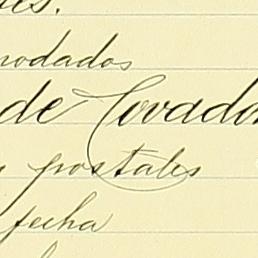 modados
de Covado
postales
fecha